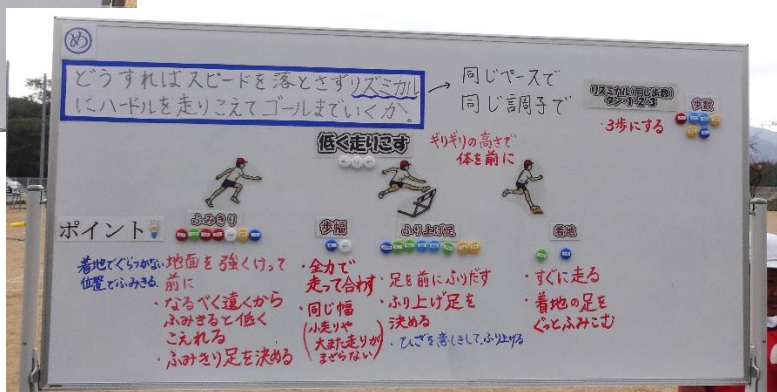 め
どうすればスピードを落とさずリズミカル
にハードルを走りこえてゴールまでいくか。
→ 同じペースで
同じ調子で
リズミカル(同じ歩数)
タン・1・2・3
歩数
・3歩にする
低く走りこす
ギリギリの高さで
体を前に
ポイント
ふみきり
着地でぐらつかない
位置でふみきる。
地面を強くけって
前に
・なるべく遠くから
ふみきると低く
こえれる
・ふみきり足を決める
歩幅
・全力で
走って合わす
・同じ幅
(小走りや
大また走りが
まざらない)
ふり上げ足
・足を前にふりだす
・ふり上げ足を
決める
・ひざを意しきして、ふり上げる
着地
・すぐに走る
・着地の足を
ぐっとふみこむ